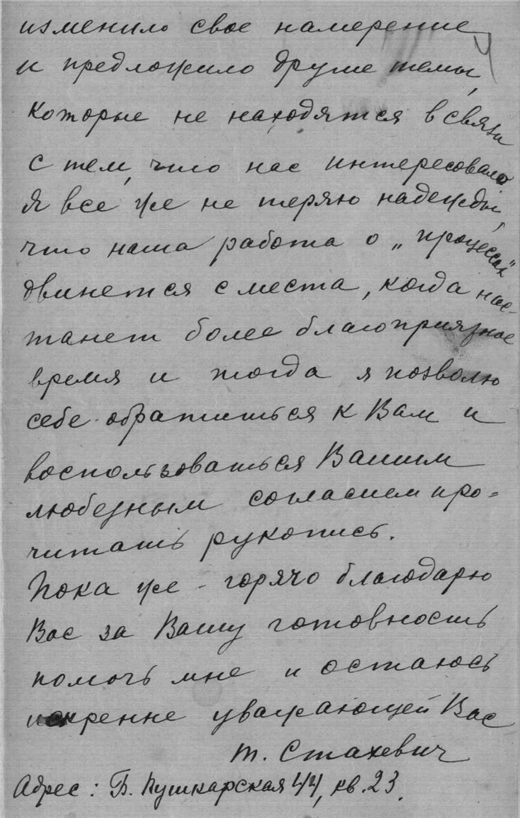 изменило свое намерение
и предложило другие темы,
которые не находятся в связи
с тем, что нас интересовало
Я все же не теряю надежды,
что наша работа о „процессах“
двинется с места, когда нас-
танет более благоприятное
время и тогда я позволю
себе обратиться к Вам и
воспользоваться Вашим
любезным согласием про-
читать рукопись.
Пока же - горячо благодарю
Вас за Вашу готовность
помочь мне и остаюсь
искренне уважающей Вас
Т. Стахевич
Адрес: Б. Пушкарская 44, кв. 23.